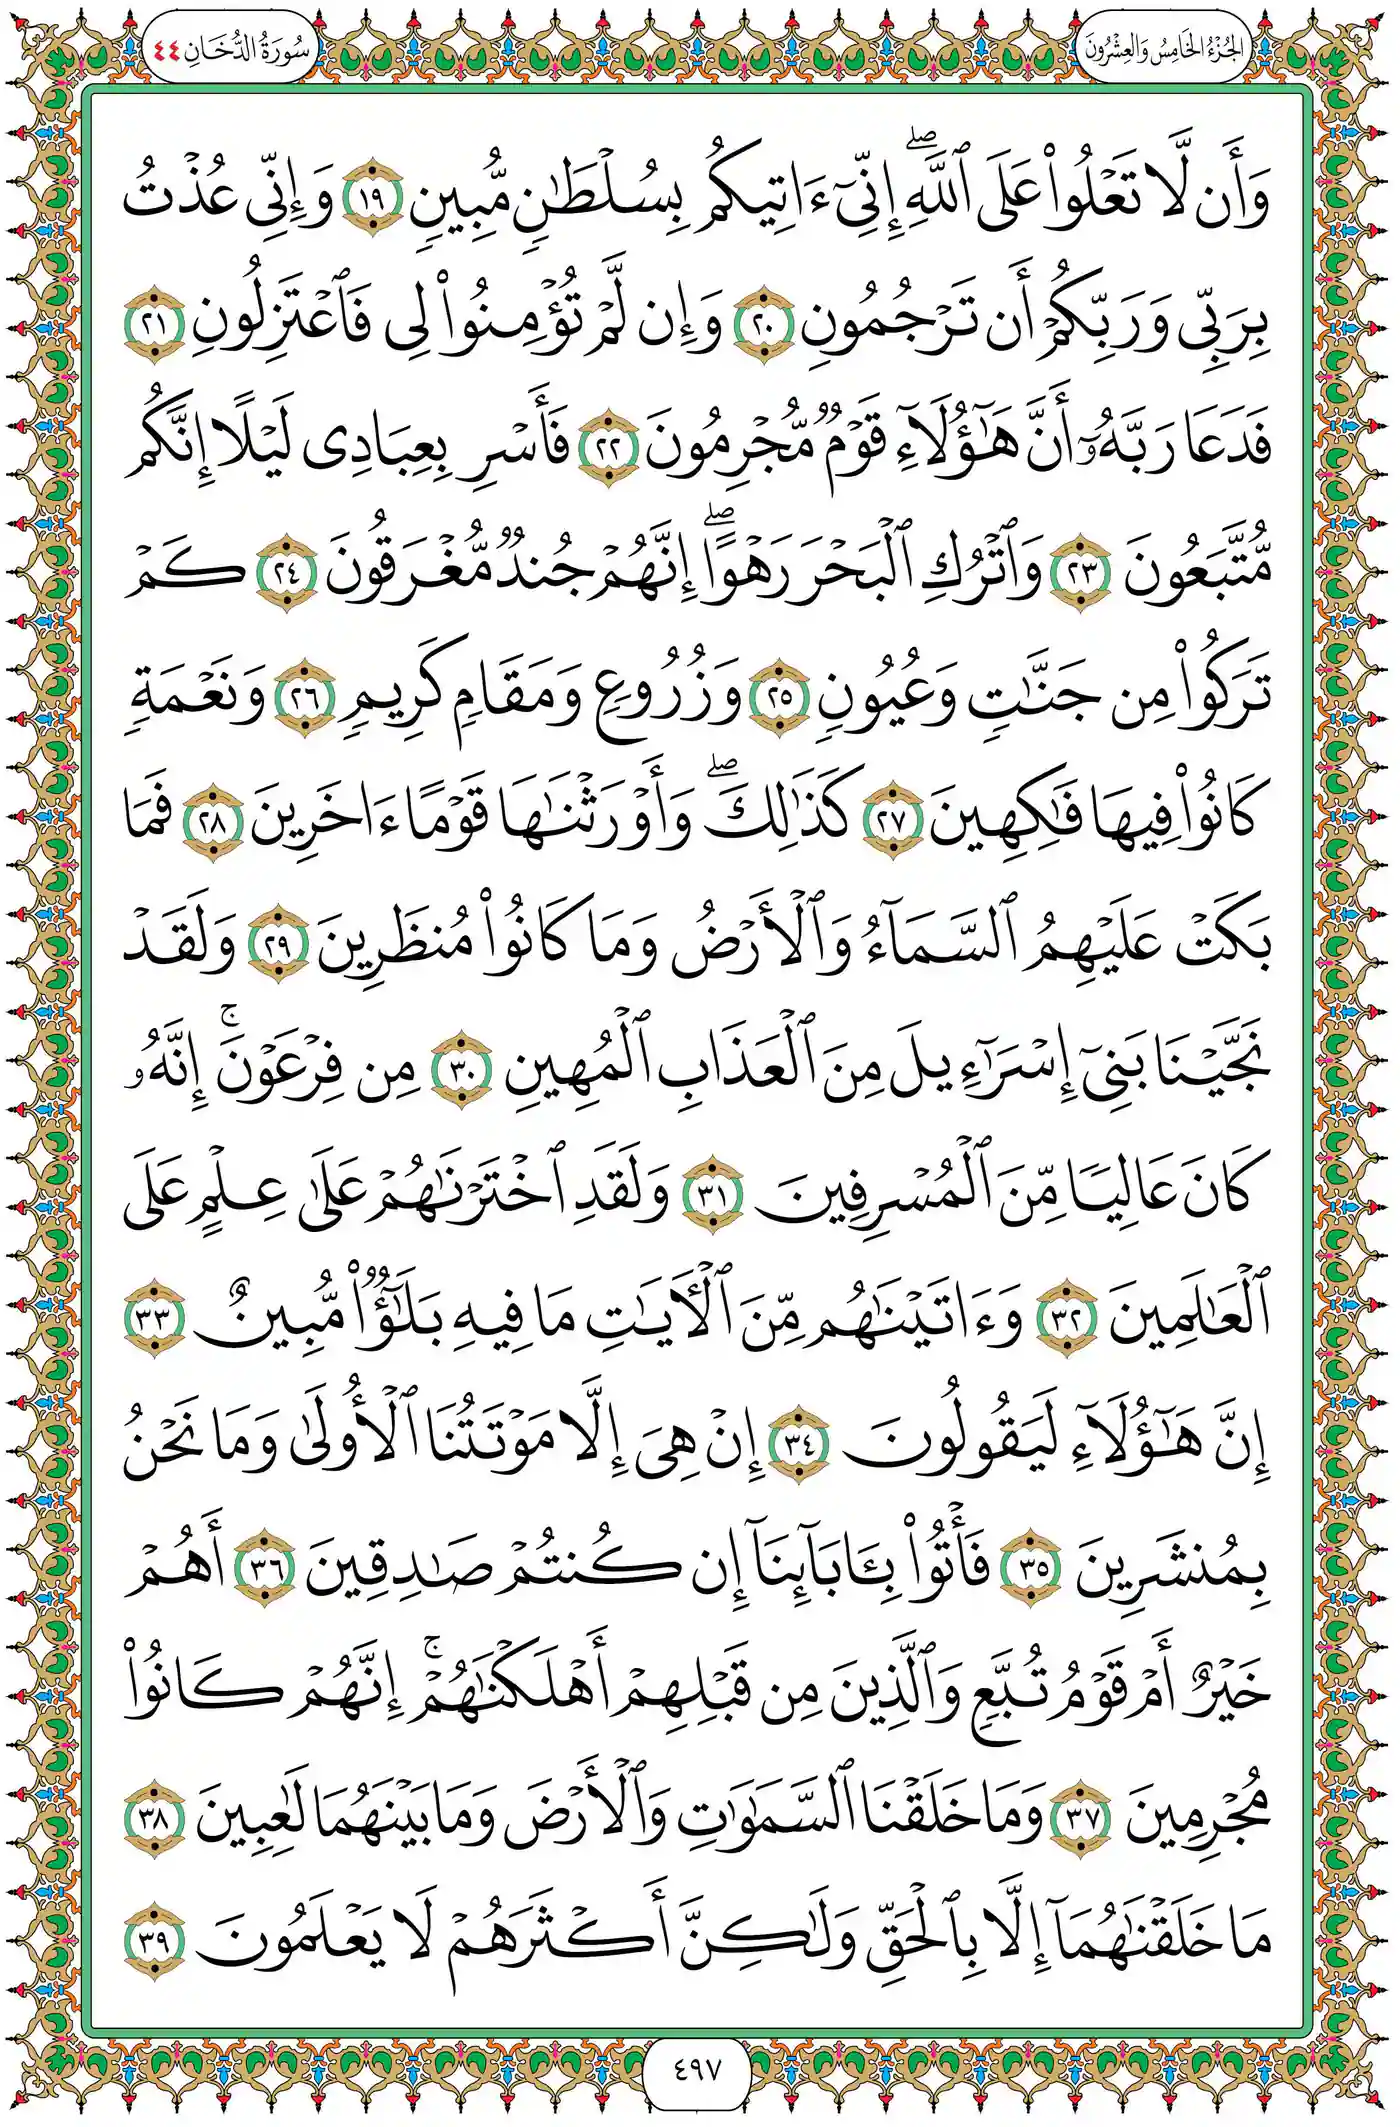 الجُزْءُ الخَامِسُ وَالعِشْرُونَ
سُورَةُ الدُّخَانِ ٤٤
وَأَن لَّا تَعْلُوا۟ عَلَى ٱللَّهِ ۖ إِنِّىٓ ءَاتِيكُم بِسُلْطَـٰنٍ مُّبِينٍ ١٩ وَإِنِّى عُذْتُ
بِرَبِّى وَرَبِّكُمْ أَن تَرْجُمُونِ ٢٠ وَإِن لَّمْ تُؤْمِنُوا۟ لِى فَٱعْتَزِلُونِ ٢١
فَدَعَا رَبَّهُۥٓ أَنَّ هَـٰٓؤُلَآءِ قَوْمٌ مُّجْرِمُونَ ٢٢ فَأَسْرِ بِعِبَادِى لَيْلًا إِنَّكُم
مُّتَّبَعُونَ ٢٣ وَٱتْرُكِ ٱلْبَحْرَ رَهْوًا ۖ إِنَّهُمْ جُندٌ مُّغْرَقُونَ ٢٤ كَمْ
تَرَكُوا۟ مِن جَنَّـٰتٍ وَعُيُونٍ ٢٥ وَزُرُوعٍ وَمَقَامٍ كَرِيمٍ ٢٦ وَنَعْمَةٍ
كَانُوا۟ فِيهَا فَـٰكِهِينَ ٢٧ كَذَٰلِكَ ۖ وَأَوْرَثْنَـٰهَا قَوْمًا ءَاخَرِينَ ٢٨ فَمَا
بَكَتْ عَلَيْهِمُ ٱلسَّمَآءُ وَٱلْأَرْضُ وَمَا كَانُوا۟ مُنظَرِينَ ٢٩ وَلَقَدْ
نَجَّيْنَا بَنِىٓ إِسْرَٰٓءِيلَ مِنَ ٱلْعَذَابِ ٱلْمُهِينِ ٣٠ مِن فِرْعَوْنَ ۚ إِنَّهُۥ
كَانَ عَالِيًا مِّنَ ٱلْمُسْرِفِينَ ٣١ وَلَقَدِ ٱخْتَرْنَـٰهُمْ عَلَىٰ عِلْمٍ عَلَى
ٱلْعَـٰلَمِينَ ٣٢ وَءَاتَيْنَـٰهُم مِّنَ ٱلْـَٔايَـٰتِ مَا فِيهِ بَلَـٰٓؤٌا۟ مُّبِينٌ ٣٣
إِنَّ هَـٰٓؤُلَآءِ لَيَقُولُونَ ٣٤ إِنْ هِىَ إِلَّا مَوْتَتُنَا ٱلْأُولَىٰ وَمَا نَحْنُ
بِمُنشَرِينَ ٣٥ فَأْتُوا۟ بِـَٔابَآئِنَآ إِن كُنتُمْ صَـٰدِقِينَ ٣٦ أَهُمْ
خَيْرٌ أَمْ قَوْمُ تُبَّعٍ وَٱلَّذِينَ مِن قَبْلِهِمْ أَهْلَكْنَـٰهُمْ ۚ إِنَّهُمْ كَانُوا۟
مُجْرِمِينَ ٣٧ وَمَا خَلَقْنَا ٱلسَّمَـٰوَٰتِ وَٱلْأَرْضَ وَمَا بَيْنَهُمَا لَـٰعِبِينَ ٣٨
مَا خَلَقْنَـٰهُمَآ إِلَّا بِٱلْحَقِّ وَلَـٰكِنَّ أَكْثَرَهُمْ لَا يَعْلَمُونَ ٣٩
٤٩٧